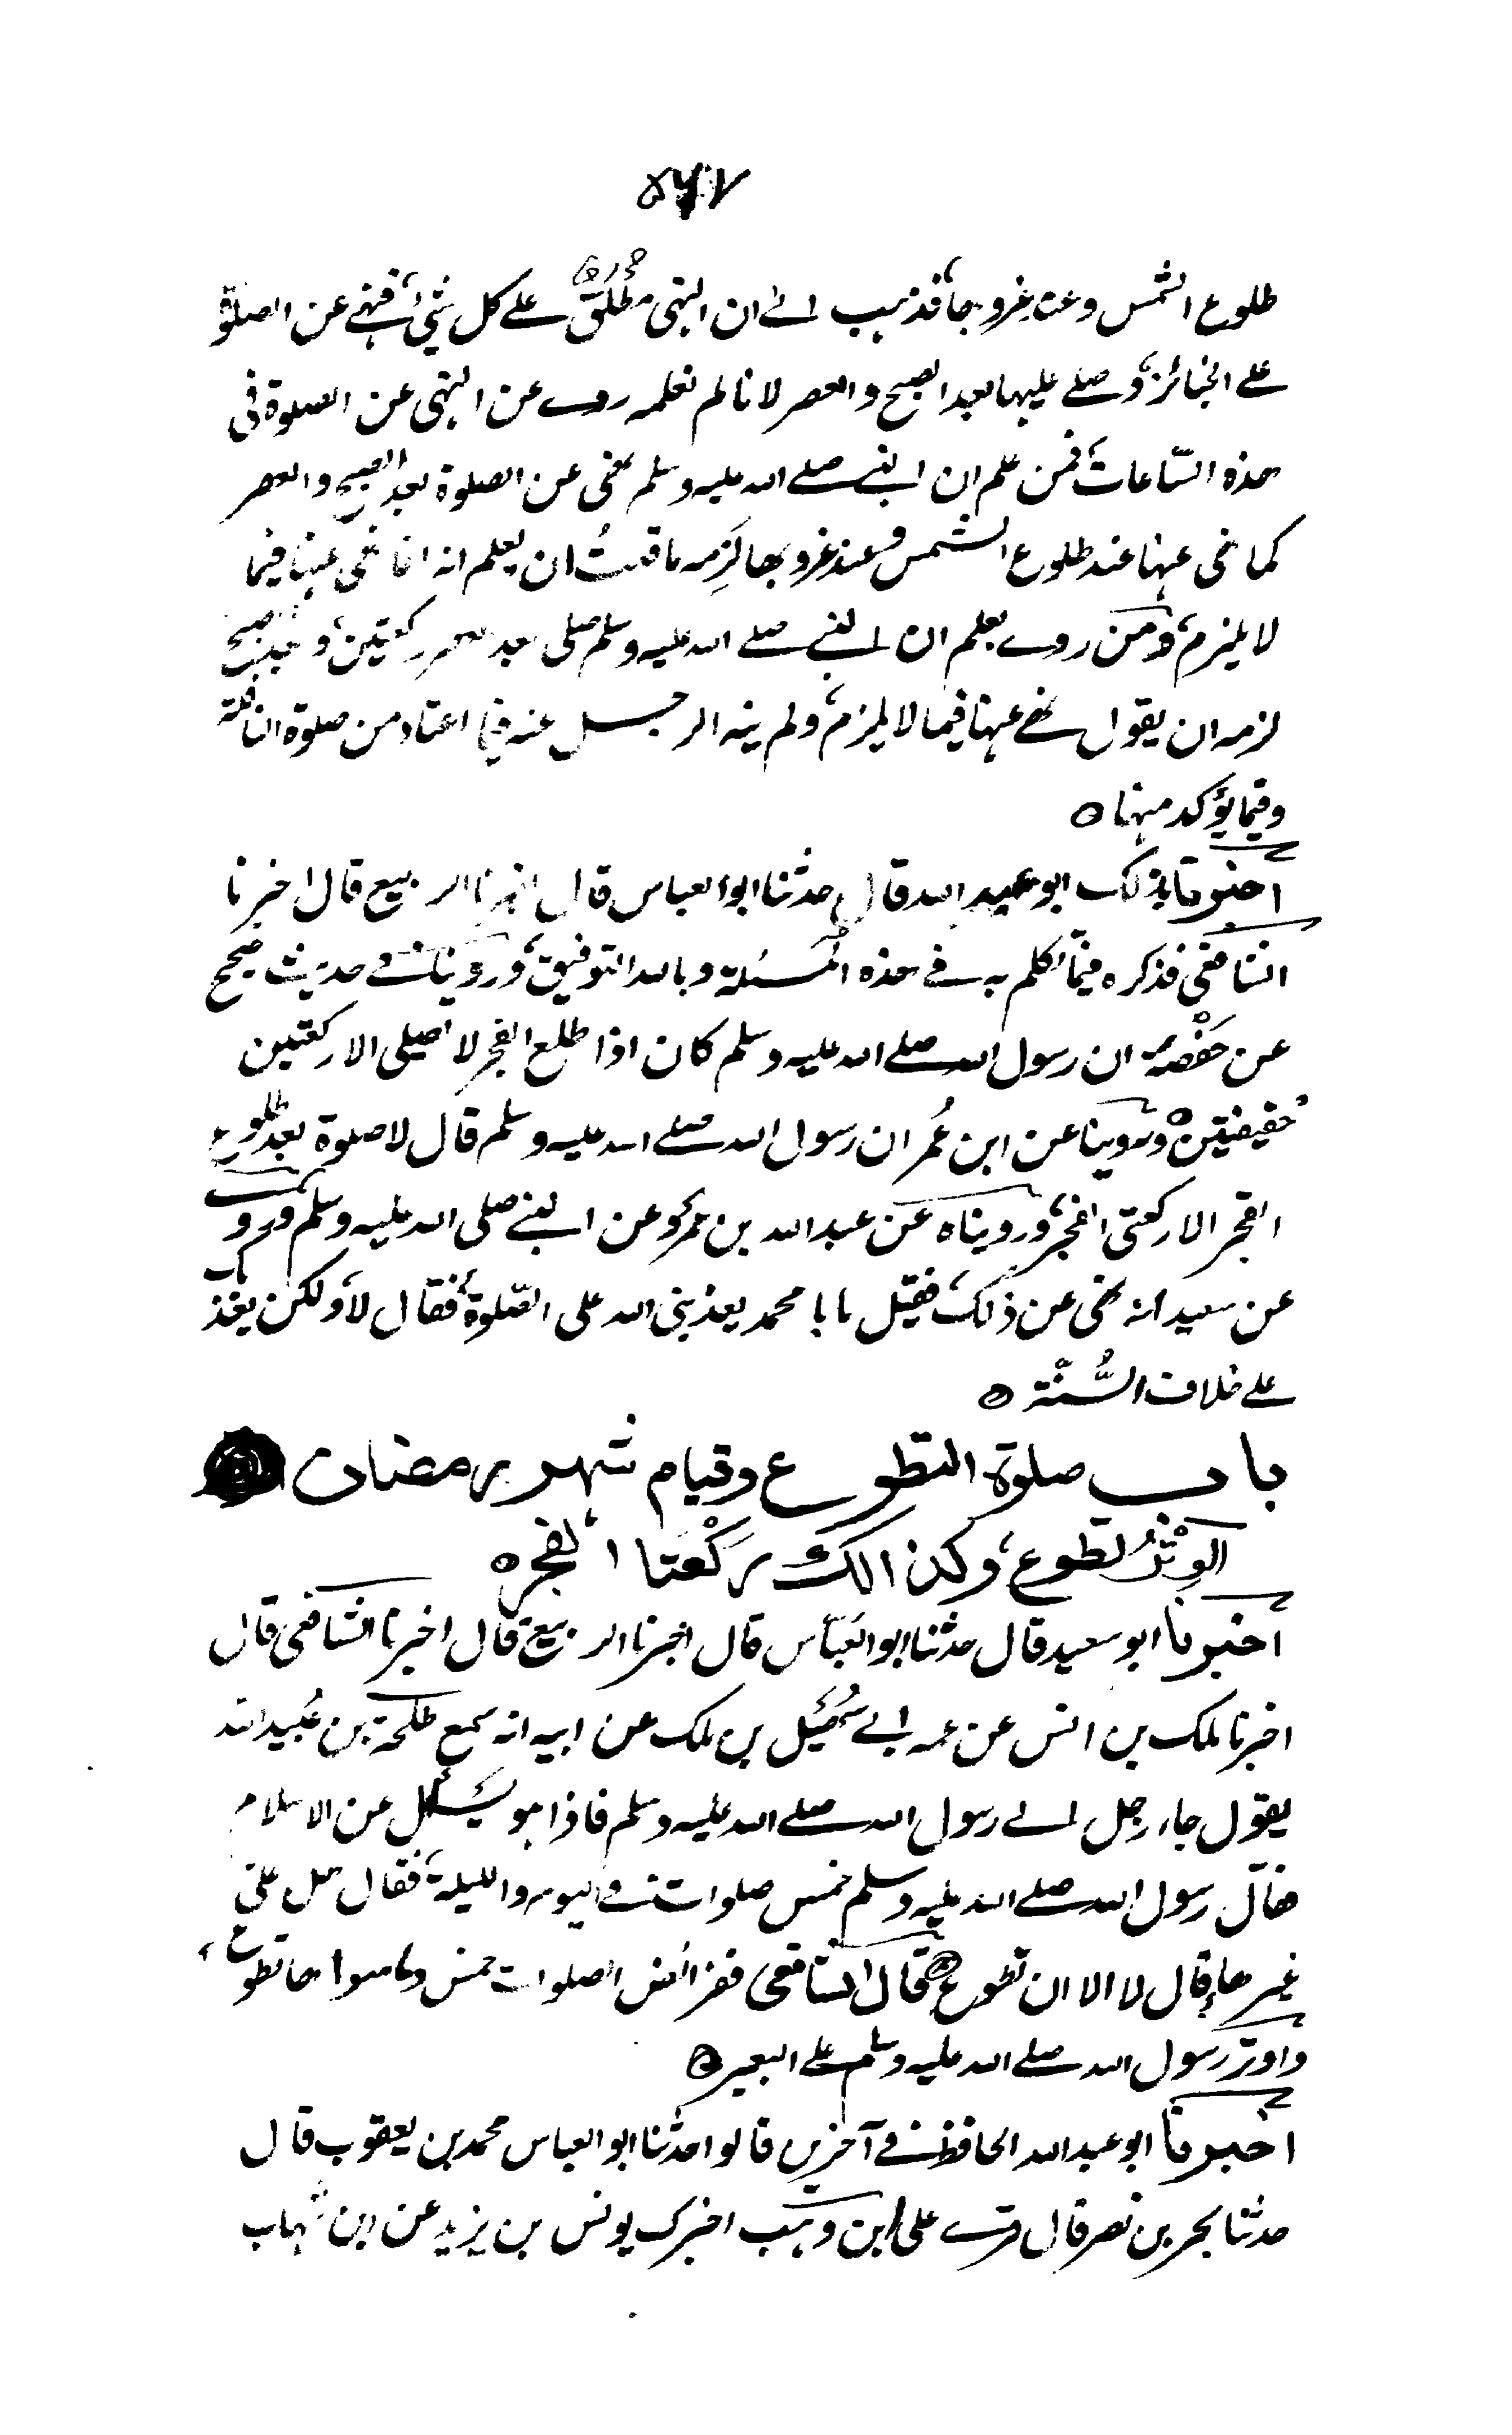 ۵۶۷
طلوع الشمس وعند غروبها فذهب الى ان النهى مطلق على كل شئ فنهى عن الصلوة
على الجنائز وصلى عليها بعد الصبح والعصر لانا لم نعلمه روى عن النهى عن الصلوة فى
هذه الساعات فمن علم ان النبى صلى الله عليه وسلم نهى عن الصلوة بعد الصبح والعصر
كما نهى عنها عند طلوع الشمس وعند غروبها لزمه ما قلتُ ان يعلم انه انما نهى عنها فيما
لا يلزم ومن روى يعلم ان النبى صلى الله عليه وسلم صلى بعد العصر ركعتين و
لزمه ان يقول نهى عنها فيما لا يلزم ولم ينه الرجل عنه فيما اعتاد من صلوة النافلة
وفيما يؤكد منها ه
اخبرنا بذلك ابو عبد الله قال حدثنا ابو العباس قال اخبرنا الربيع قال اخبرنا
الشافعى فذكره فيما تكلم به فى هذه المسئلة وبالله التوفيق وروينا فى حديث صحيح
عن حَفْصة ان رسول الله صلى الله عليه وسلم كان اذا طلع الفجر لا يصلى الا ركعتين
خفيفتين ه وروينا عن ابن عُمر ان رسول الله صلى الله عليه وسلم قال لا صلوة بعد طلوع
الفجر الا ركعتى الفجر وروينا عن عبد الله بن عمرو عن النبى صلى الله عليه وسلم وروى
عن سعيد انه نهى عن ذلك فقيل يا با محمد يعذبنى الله على الصّلوة فقال لا ولكن يعذ بك
على خلاف السُّنَّة ه
باب صلوة التطوع وقيام شهر رمضان
الوِتْرُ تطوع وكذالك رَكْعَتا الفجر ه
اخبرنا ابو سعيد قال حدثنا ابو العبّاس قال اخبرنا الربيع قال اخبرنا الشافعى قال
اخبرنا ملك بن انس عن عمه ابى سُهَيْل بن ملك عن ابيه انه سمع طلحة بن عُبيد الله
يقول جاء رجل الى رسول الله صلى الله عليه وسلم فاذا هو يَسْئل عن الاسلام
فقال رسول الله صلى الله عليه وسلم خمس صلوات فى اليوم والليلة فقال هل علىّ
غيرها قال لا الا ان تطوع ه قال الشافعى ففرائض الصلوات خمس وما سواها تطوع
واوتر رسول الله صلى الله عليه وسلم على البعير ه
اخبرنا ابو عبد الله الحافظ فى آخرين قالوا حدثنا ابو العباس محمد بن يعقوب قال
حدثنا بحر بن نصر قال قرئ على ابن وهب اخبرك يونس بن يزيد عن ابن شهاب